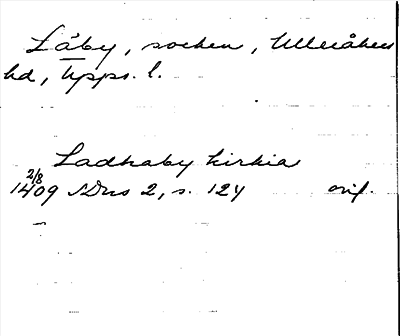 Låby, socken, Ulleråkers
hd, Upps. l.
Ladhaby kirkia
2/8
1409 SDns 2, s. 124 orig.